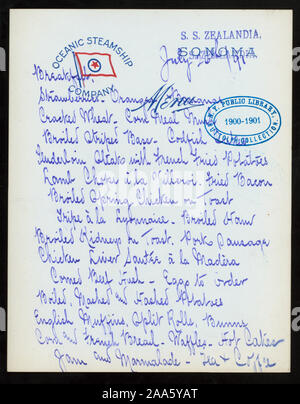 S. S. ZEALANDIA,
SONOMA
OCEANIC STEAMSHIP COMPANY
July
Breakfast
Menu
N.Y. PUBLIC LIBRARY
1900-1901
BUTTOLPH COLLECTION
Strawberries Oranges Bananas
Cracked Wheat - Corn Meal Mush
Broiled Striped Bass - Codfish
Tenderloin Steaks with French Fried Potatoes
Lamb Chops à la Fried Bacon
Broiled Spring Chicken on Toast
Tripe à la Lyonnaise - Broiled Ham
Broiled Kidneys on Toast. Pork Sausage
Chicken Liver Sautée à la Madeira
Corned Beef Hash - Eggs to order
Boiled Mashed and Hashed Potatoes
English Muffins, Split Rolls, Bunns
Corn and French Bread - Waffles - Hot Cakes
Jam and Marmalade - Tea & Coffee
alamy
Image ID: 2AA5YAT
www.alamy.com